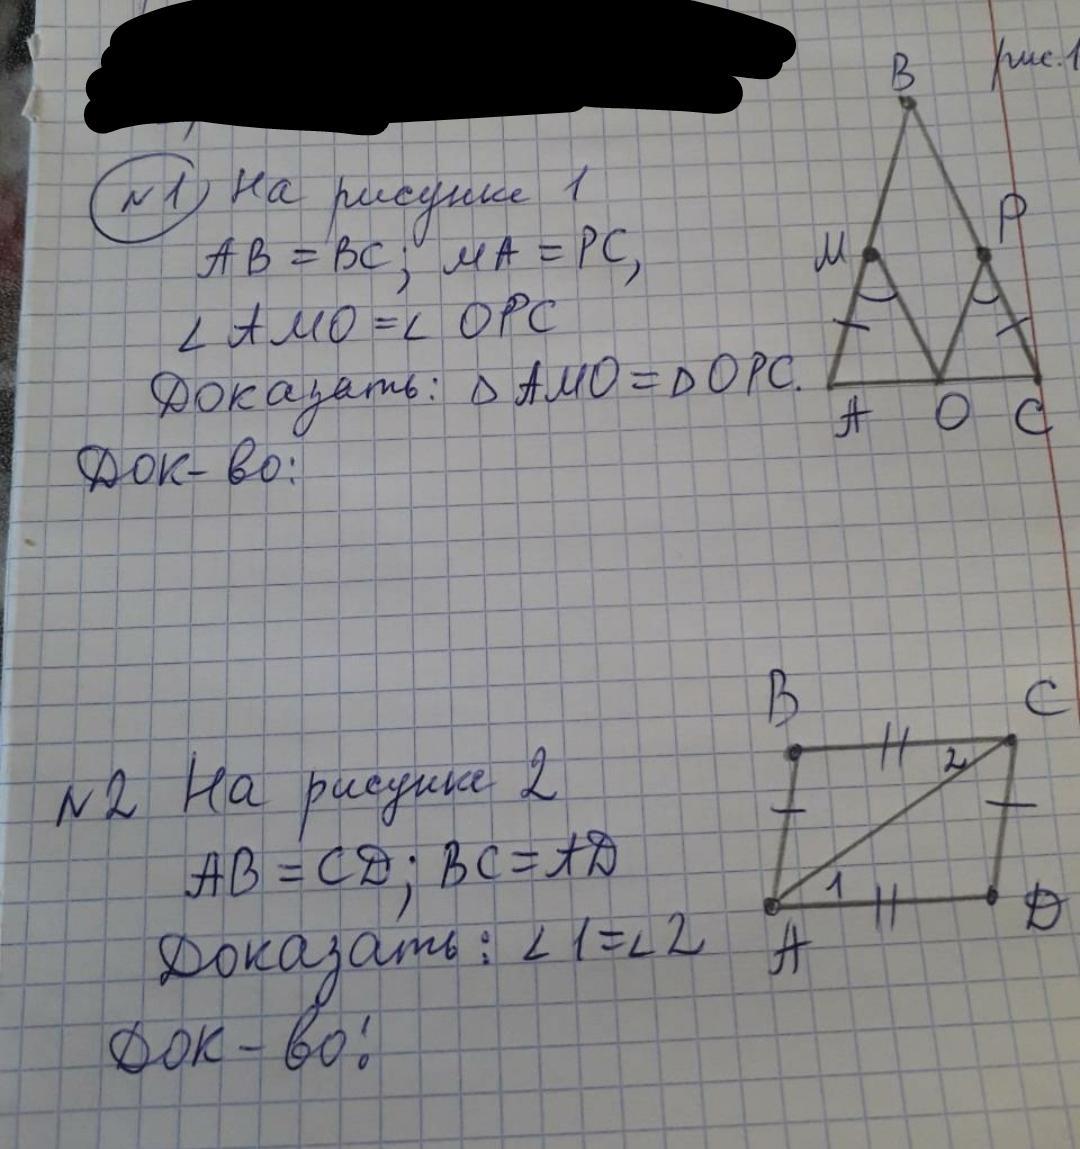 рис.1
№1 На рисунке 1
AB = BC; MA = PC,
∠ AMO = ∠ OPC
Доказать: Δ AMO = Δ OPC.
Док-во:
B
M
P
A O C
№2 На рисунке 2
AB = CD; BC = AD
Доказать: ∠1=∠2
Док-во:
B C
2
1
A D